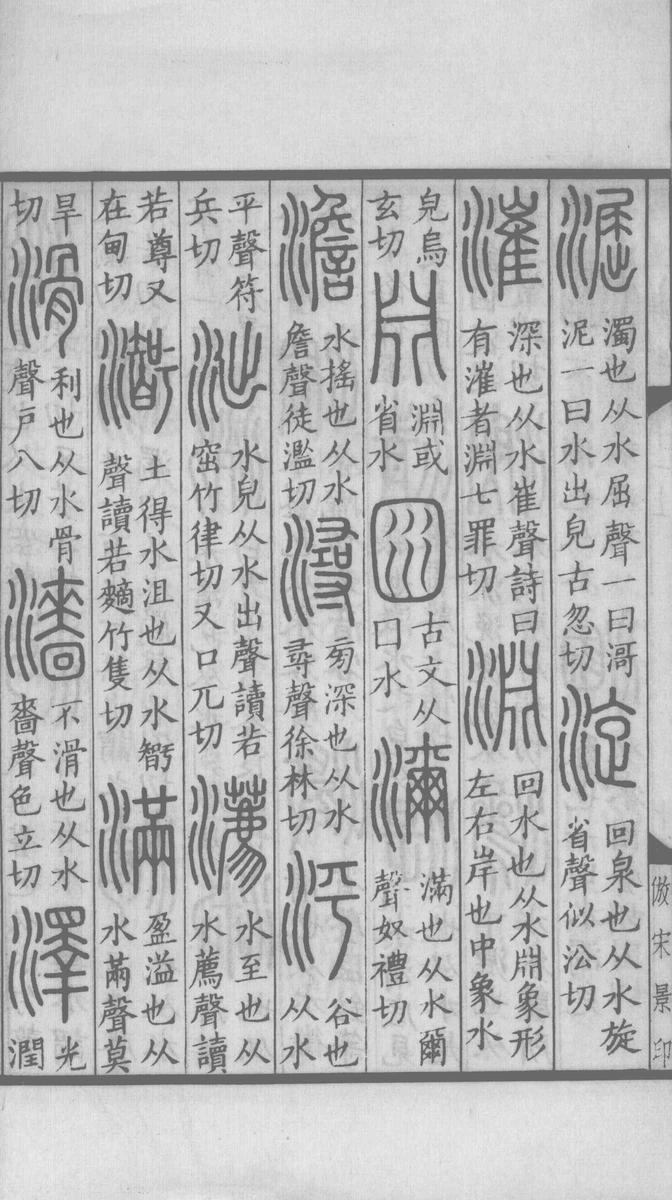 淈濁也从水屈聲一曰滒泥一曰水出皃古忽切淀回泉也从水旋省聲似沿切
漼深也从水崔聲詩曰有漼者淵七罪切淵回水也从水𣶒象形左右岸也中象水
皃烏玄切𣶒淵或省水囦古文从囗水濔滿也从水爾聲奴禮切
澹水搖也从水詹聲徒濫切潯㫄深也从水尋聲徐林切泙谷也从水
平聲符兵切泏水皃从水出聲讀若窋竹律切又口兀切瀳水至也从水薦聲讀
若尊又在甸切𣽤土得水沮也从水𥏼聲讀若麶竹隻切滿盈溢也从水㒼聲莫
旱切滑利也从水骨聲戶八切濇不滑也从水嗇聲色立切澤光潤
倣宋景印